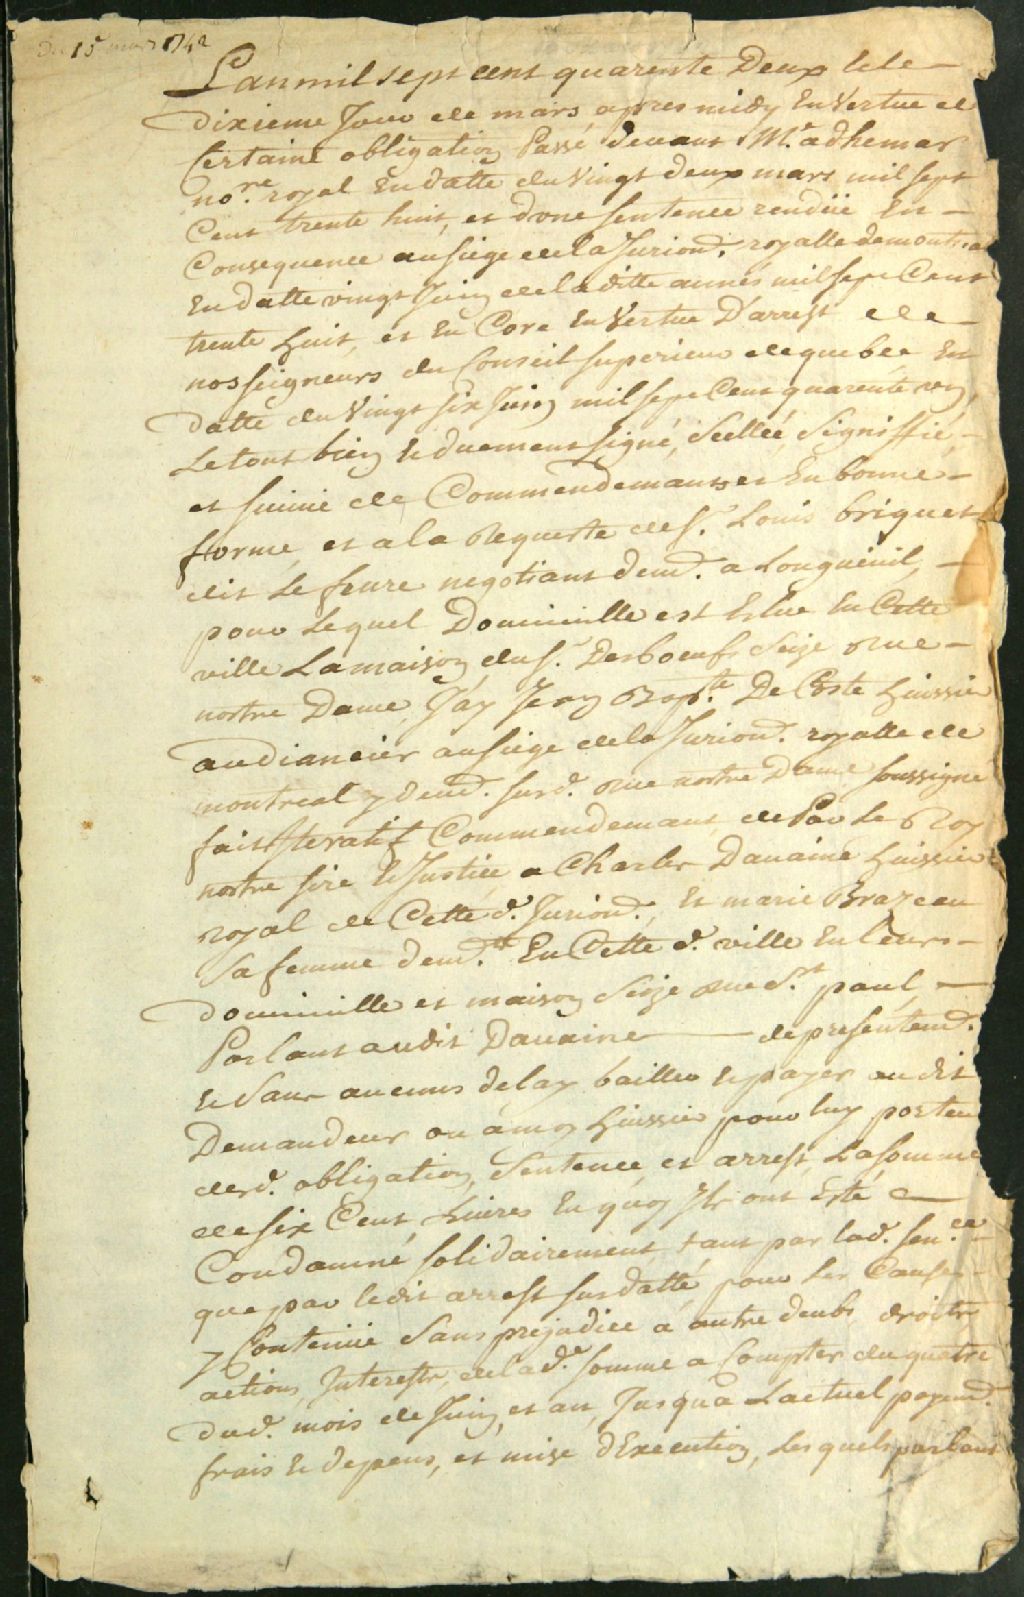 Du 15e mars 1742
L'an mil sept cent quarente Deux le le
dixieme Jour de mars apres midy En Vertue de
Certaine obligation Passé devant Mr. adhemar
nore. royal En datte du Vingt deux mars mil sept
Cent trente huit, et d'une sentence rendüe En
Consequence au siege de la Juriond. royalle de montreal
En datte vingt Juin de laditte année mil sept Cent
trente huit, et En Core En Vertue D'arrest de
nosseigneurs du Conseil superieur de quebec En
datte du Vingt six Juin mil sept Cent quarente un,
Le tout bien & duement signé, Scellée, Signiffié,
et suivie de Commendemants et En bonne
forme, et a la Requeste de sr. Louis briquet
dit Le febvre negotiant demt. a Longueuil,
pour Lequel Domicille est Eslue En Cette
ville La maison du sr. Desboeufs Size rue
nostre Dame, J'ay Jean Bapte. De Coste huissier
audiancier au siege de la Juriond. royalle de
montreal y demt. susd. rue nostre Dame soussigné
fait Iteratif Commendemant de Par Le Roy
nostre sire & Justice a Charles Danaine huissier
royal de Cette d. Juriond., Et marie Brazeau
sa femme demtt. En Cette d. ville En leurs
domicille et maison Size rue St. paul,
Parlant audit Danaine de presentemt.
& Sans aucuns delay bailler & payer au dit
Demandeur ou a moy huissier pour luy porteur
desd. obligation, Sentence, et arrest, La somme
de six Cent Livres En quoy Ils ont Esté
Condamné solidairement tant par lad. sence.
que par ledit arrest susdatté, pour Les Causes
y Contenüe Sans prejudice a autre deubs, droits
actions, Interests, de lad. somme a Compter du quatre
dud. mois de Juin, et an, Jusqu'a Lactuel payemt.
frais & depens, et mise d'Execution, Les quels parlant